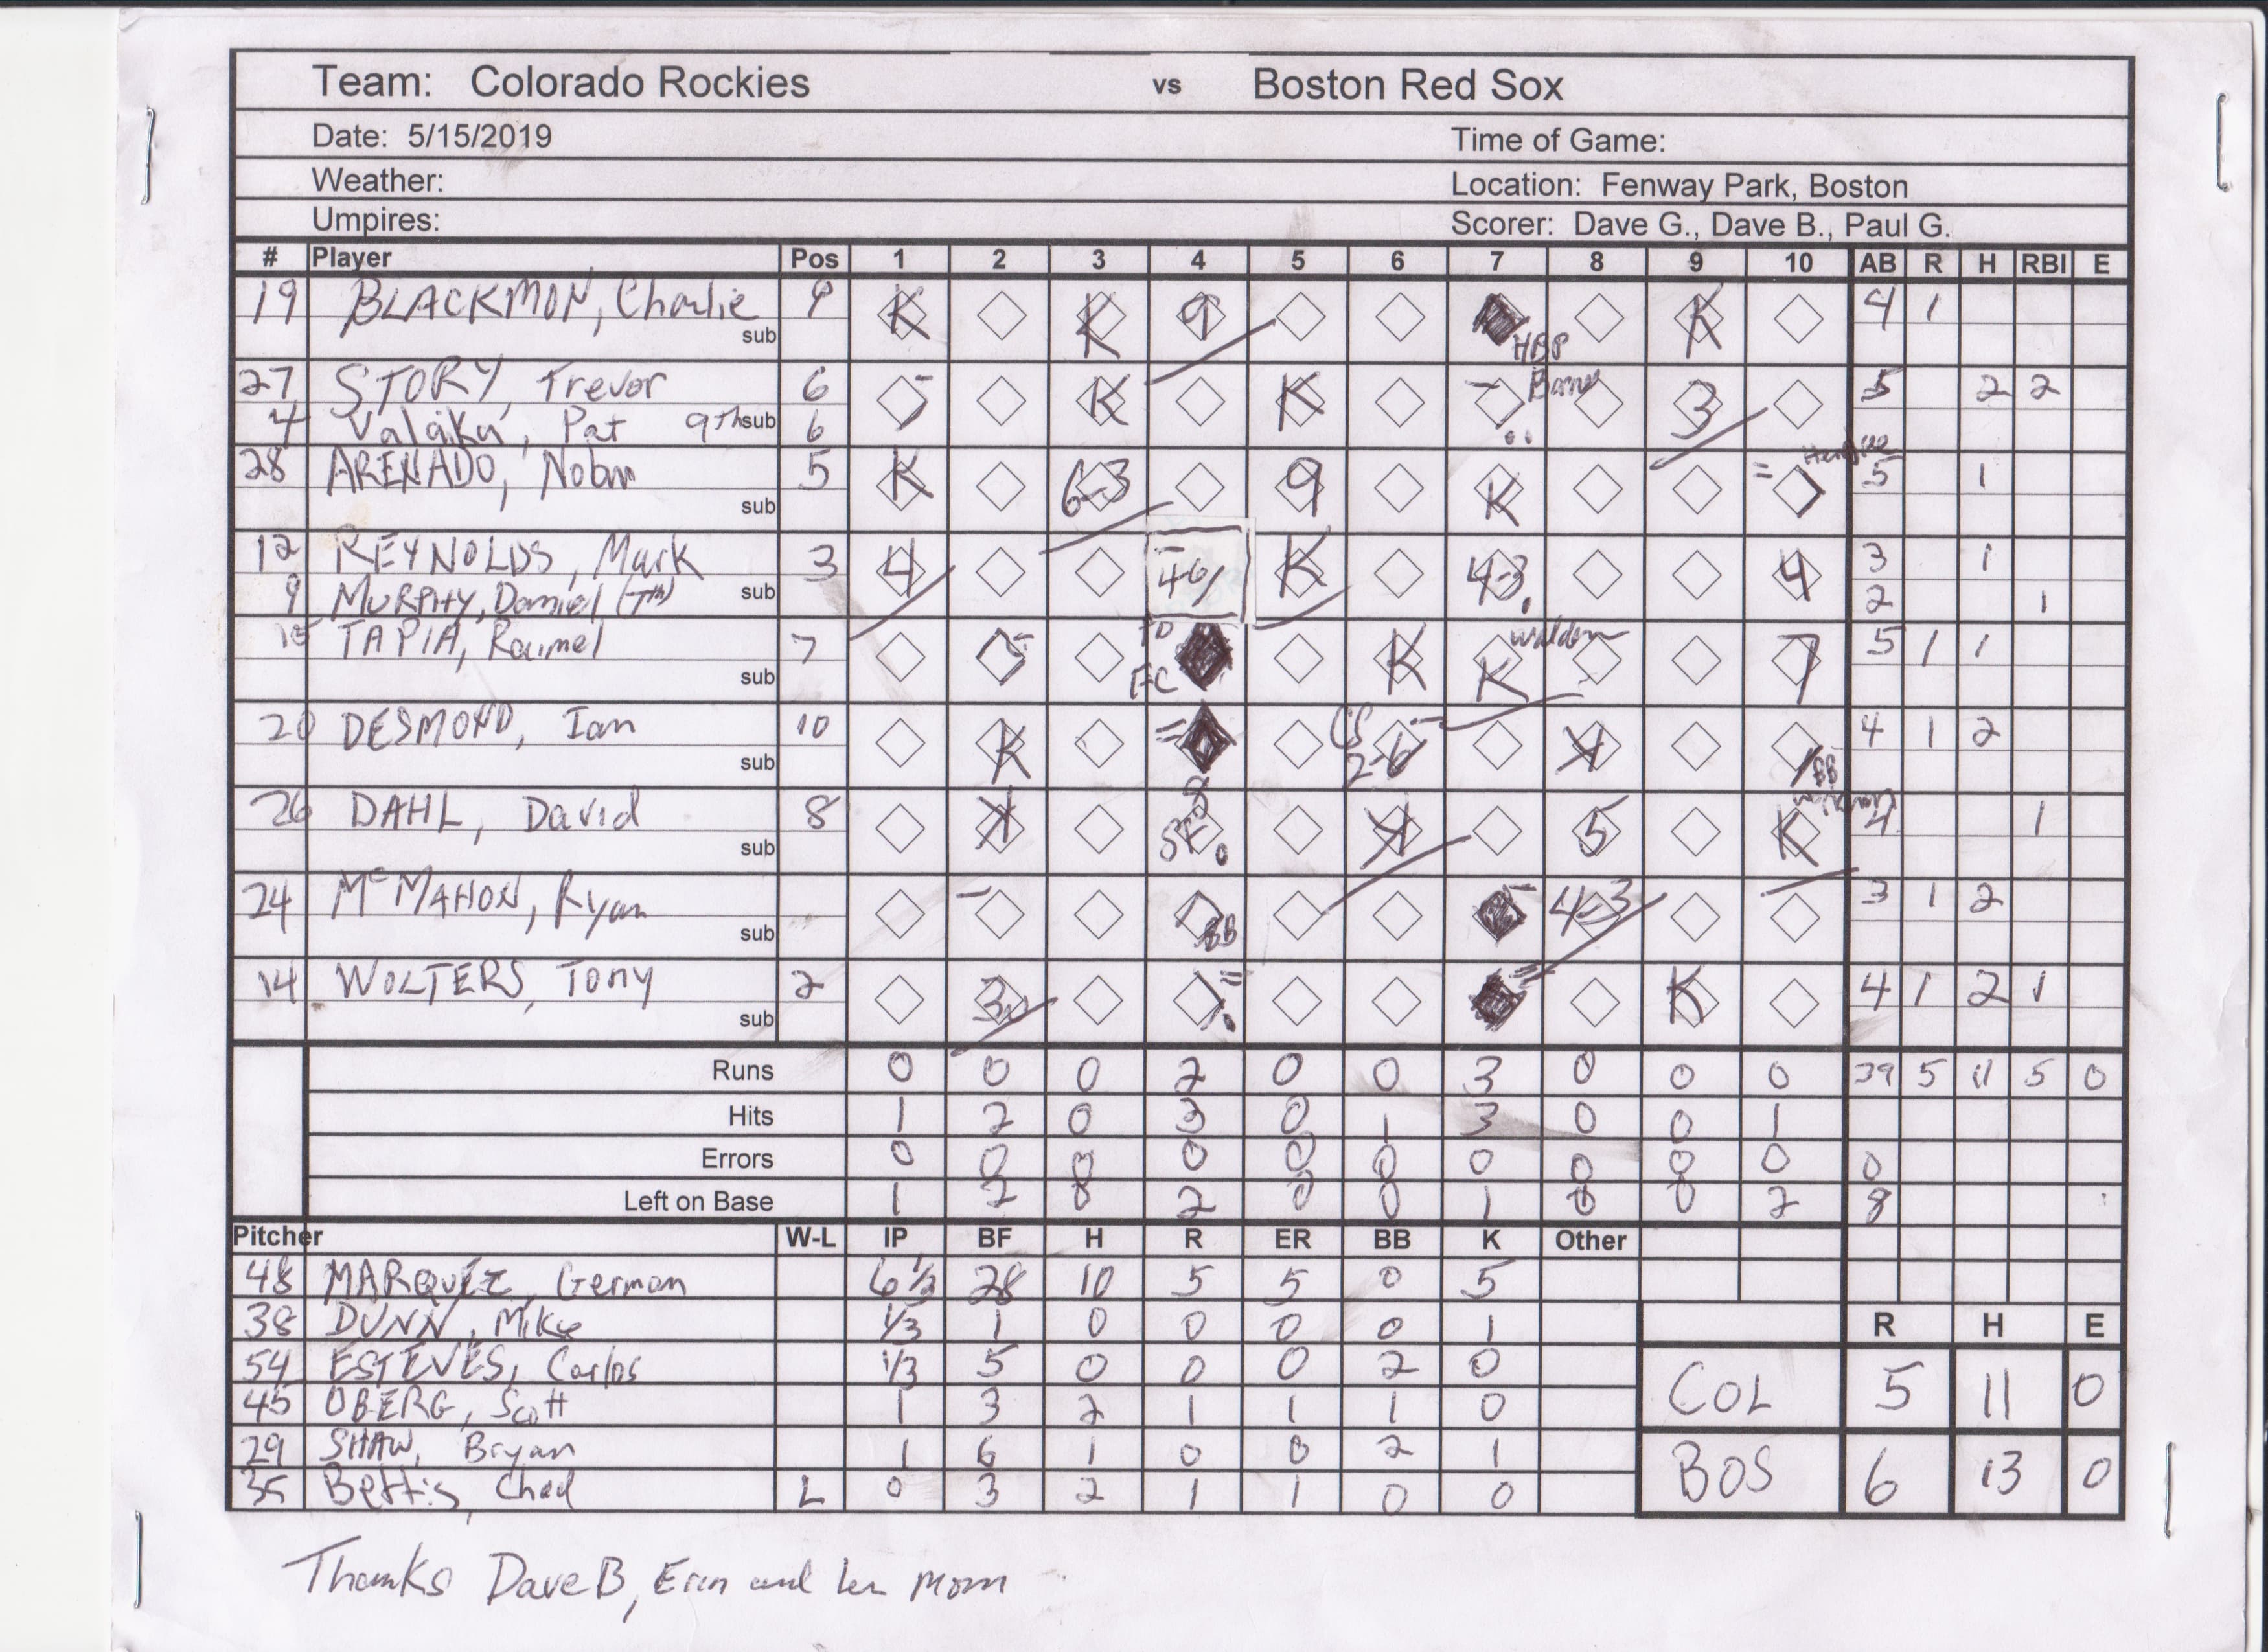 Team: Colorado Rockies vs Boston Red Sox
Date: 5/15/2019 Time of Game:
Weather: Location: Fenway Park, Boston
Umpires: Scorer: Dave G., Dave B., Paul G.
# Player Pos 1 2 3 4 5 6 7 8 9 10 AB R H RBI E
19 BLACKMON, Charlie 9 K K 9 HBP K 4 1
sub
27 STORY, Trevor 6 K K Barnes 3 5 2 2
4 Valaika, Pat 9th sub 6
28 ARENADO, Nolan 5 K 6-3 9 K 5 1
sub
12 REYNOLDS, Mark 3 4 46 K 4-3 4 3 1
9 MURPHY, Daniel (7th) sub 2 1
TAPIA, Raimel 7 FC K K Walden 7 5 1 1
sub
20 DESMOND, Ian 10 K CS 2-6 K BB 4 1 2
sub
26 DAHL, David 8 K SF8 K 5 K 4 1
sub
24 McMAHON, Ryan BB 4-3 3 1 2
sub
14 WOLTERS, Tony 2 3 K 4 1 2 1
sub
Runs 0 0 0 2 0 0 3 0 0 0 39 5 11 5 0
Hits 1 2 0 3 0 1 3 0 0 1
Errors 0 0 0 0 0 0 0 0 0 0 0
Left on Base 1 2 0 2 0 0 1 0 0 2 8
Pitcher W-L IP BF H R ER BB K Other
48 MARQUEZ, German 6 1/3 28 10 5 5 0 5
38 DUNN, Mike 1/3 1 0 0 0 0 1
54 ESTEVES, Carlos 1/3 5 0 0 0 2 0
45 OBERG, Scott 1 3 2 1 1 1 0
29 SHAW, Bryan 1 6 1 0 0 2 1
35 Bettis, Chad L 0 3 2 1 1 0 0
R H E
COL 5 11 0
BOS 6 13 0
Thanks Dave B, Erin and her mom